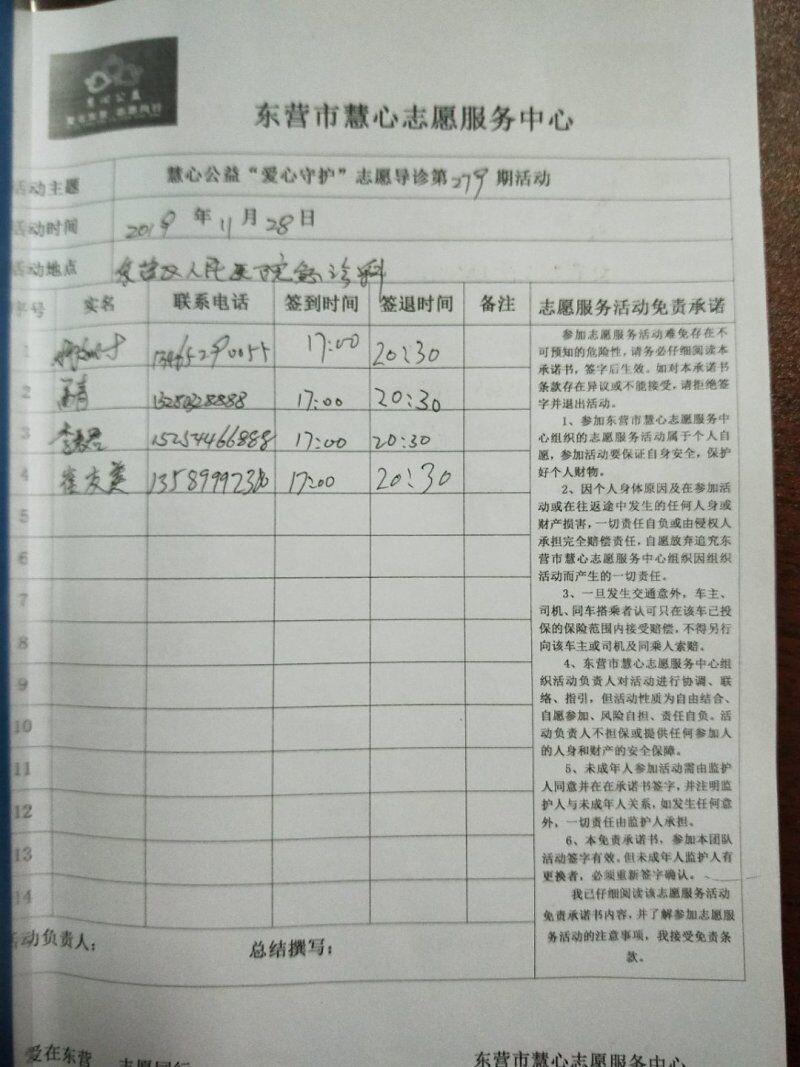 东营市慧心志愿服务中心
活动主题 慧心公益“爱心守护”志愿导诊第279期活动
活动时间 2019年11月28日
活动地点 东营区人民医院急诊科
序号 实名 联系电话 签到时间 签退时间 备注 志愿服务活动免责承诺
1 17:00 20:30
2 17:00 20:30
3 15254466888 17:00 20:30
4 崔友美 17:00 20:30
5
6
7
8
9
10
11
12
13
14
参加志愿服务活动难免存在不
可预知的危险性，请务必仔细阅读本
承诺书，签字后生效。如对本承诺书
条款存在异议或不能接受，请拒绝签
字并退出活动。
1、参加东营市慧心志愿服务中
心组织的志愿服务活动属于个人自
愿，参加活动要保证自身安全，保护
好个人财物。
2、因个人身体原因及在参加活
动或在往返途中发生的任何人身或
财产损害，一切责任自负或由侵权人
承担完全赔偿责任，自愿放弃追究东
营市慧心志愿服务中心组织因组织
活动而产生的一切责任。
3、一旦发生交通意外，车主、
司机、同车搭乘者认可只在该车已投
保的保险范围内接受赔偿，不得另行
向该车主或司机及同乘人索赔。
4、东营市慧心志愿服务中心组
织活动负责人对活动进行协调、联
络、指引，但活动性质为自由结合、
自愿参加、风险自担、责任自负。活
动负责人不担保或提供任何参加人
的人身和财产的安全保障。
5、未成年人参加活动需由监护
人同意并在在承诺书签字，并注明监
护人与未成年人关系，如发生任何意
外，一切责任由监护人承担。
6、本免责承诺书，参加本团队
活动签字有效。但未成年人监护人有
更换者，必须重新签字确认。
我已仔细阅读该志愿服务活动
免责承诺书内容，并了解参加志愿服
务活动的注意事项，我接受免责条
款。
活动负责人： 总结撰写：
爱在东营 志愿同行 东营市慧心志愿服务中心